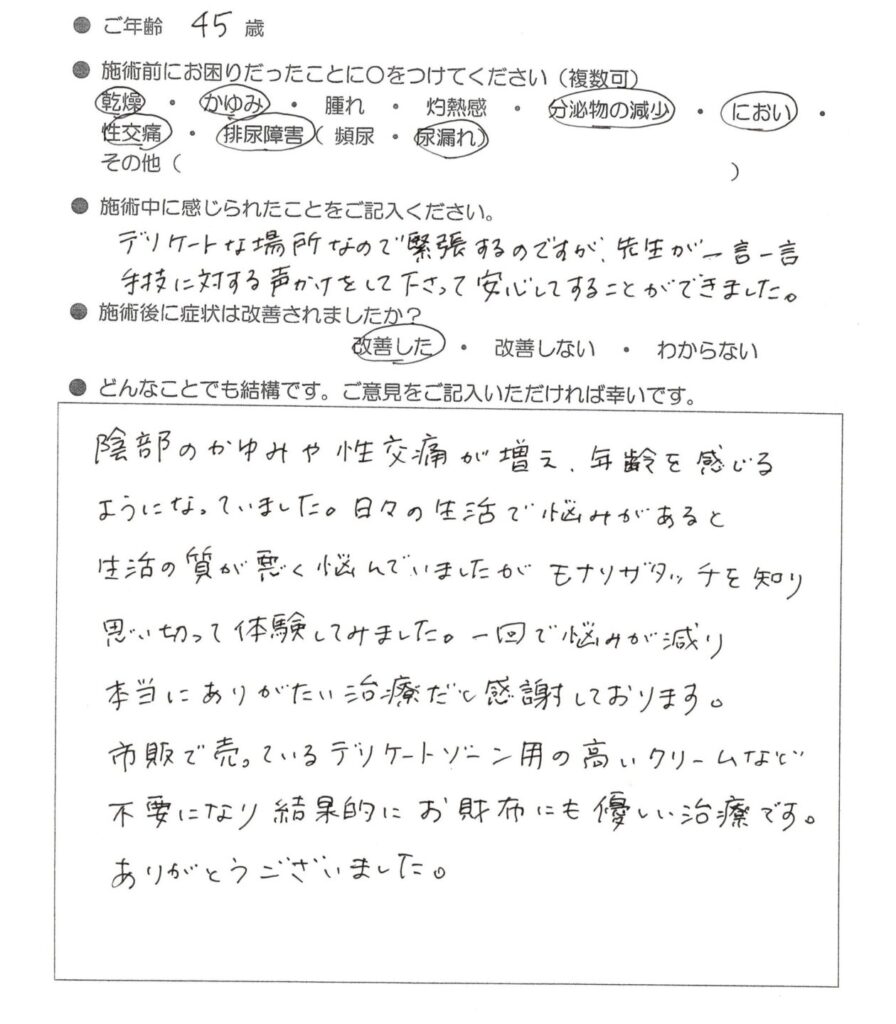 ● ご年齢 45 歳
● 施術前にお困りだったことに〇をつけてください（複数可）
乾燥 ・ かゆみ ・ 腫れ ・ 灼熱感 ・ 分泌物の減少 ・ におい ・
性交痛 ・ 排尿障害（ 頻尿 ・ 尿漏れ）
その他（ ）
● 施術中に感じられたことをご記入ください。
デリケートな場所なので緊張するのですが、先生が一言一言
手技に対する声かけをして下さって安心してすることができました。
● 施術後に症状は改善されましたか？
改善した ・ 改善しない ・ わからない
● どんなことでも結構です。ご意見をご記入いただければ幸いです。
陰部のかゆみや性交痛が増え、年齢を感じる
ようになっていました。日々の生活で悩みがあると
生活の質が悪く悩んでいましたがモナリザタッチを知り
思い切って体験してみました。一回で悩みが減り
本当にありがたい治療だと感謝しております。
市販で売っているデリケートゾーン用の高いクリームなど
不要になり結果的にお財布にも優しい治療です。
ありがとうございました。